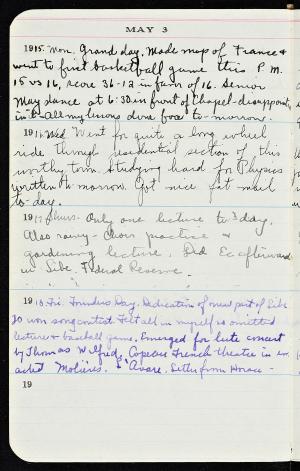 MAY 3
1915. Mon. Grand day. Made map of France &
went to first basketball game this P.M.
15 vs 16, score 36-12 in favor of 16. Senior
May dance at 6:30 in front of Chapel - disappoint
in'. All my lessons done for to-morrow.
1916 Wed. Went for quite a long wheel
ride through residential section of this
worthy town. Studying hard for Physics
written to-morrow. Got nice fat mail
to-day.
1917 Thurs. Only one lecture to-day.
Also rainy - Choir practice &
gardening lecture. Did Ec afterward
in Libe. Federal Reserve.
1918 Fri. Founders Day. Dedication of new part of Libe
20 won song contest. Felt all in myself so omitted
lecture & baseball game. Emerged for lute concert
by Thomas Wilfred, Copeau French theatre in
acted Molière's L'Avare. Letty from Horace -
19